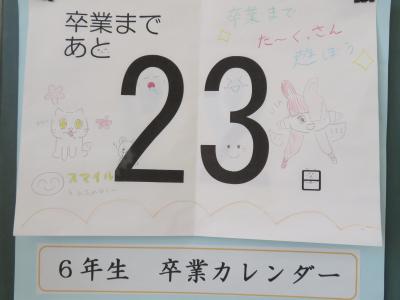 卒業まで
あと
23
日
卒業まで
た〜く、さん
遊ぼう
スマイル
6年生 卒業カレンダー